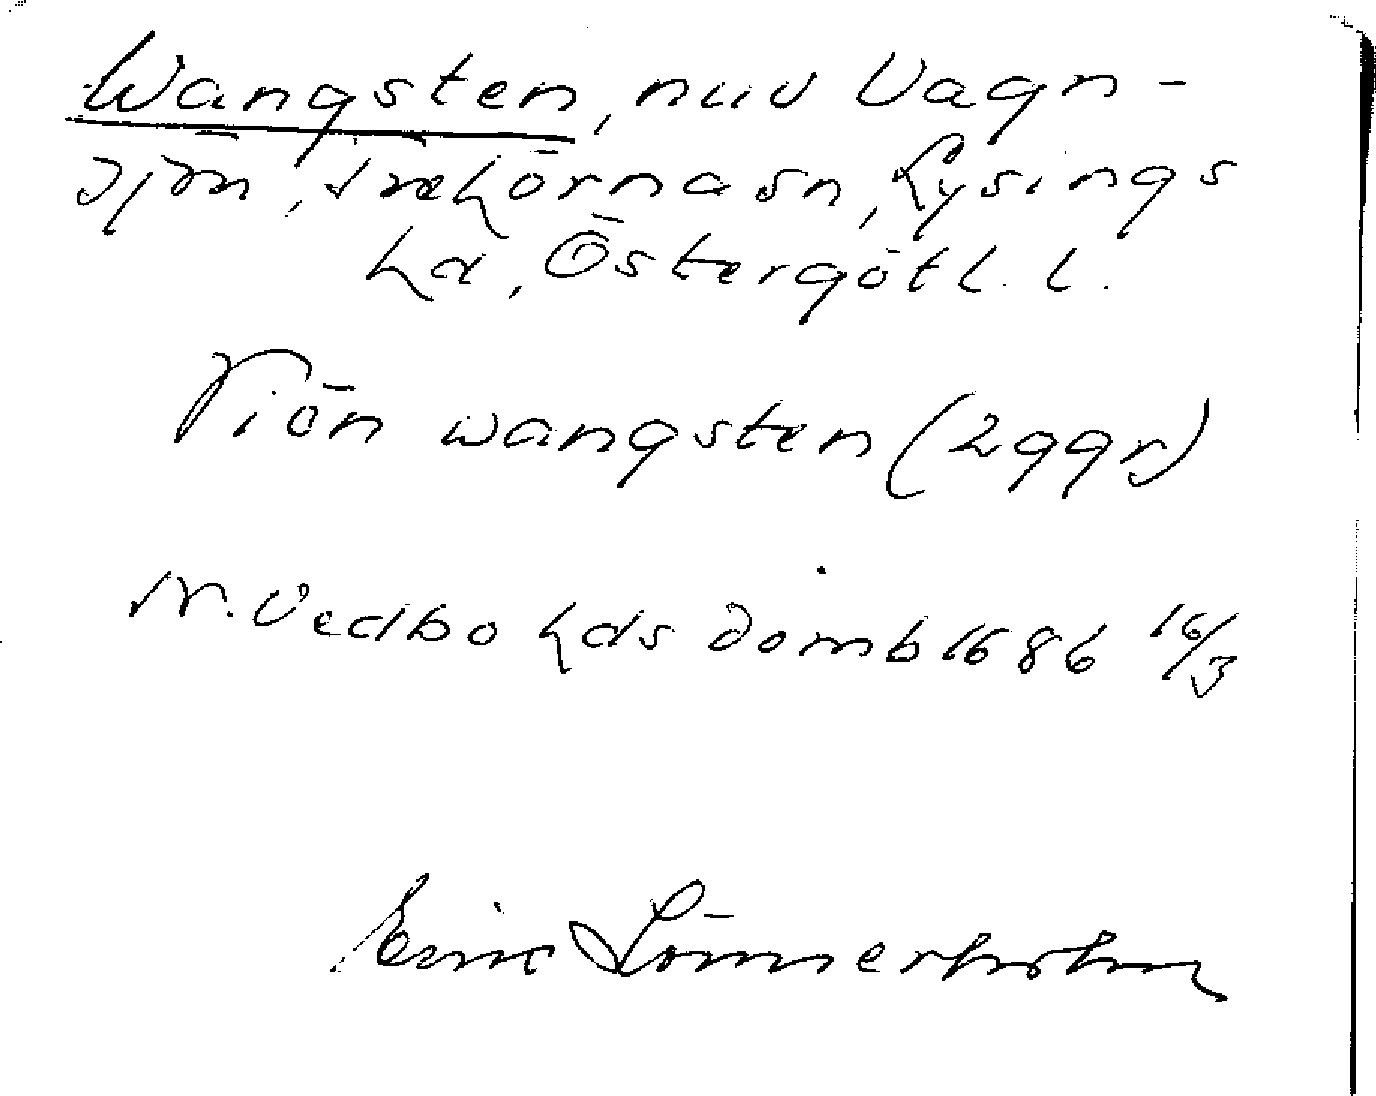 Wangsten, nuv Vagn-
sjön, Trehörna sn, Lysings
hd, Östergötl. l.
Siön wangsten (2 ggr)
N. Vedbo hds domb 1686 16/3
Eric Lönnerholm